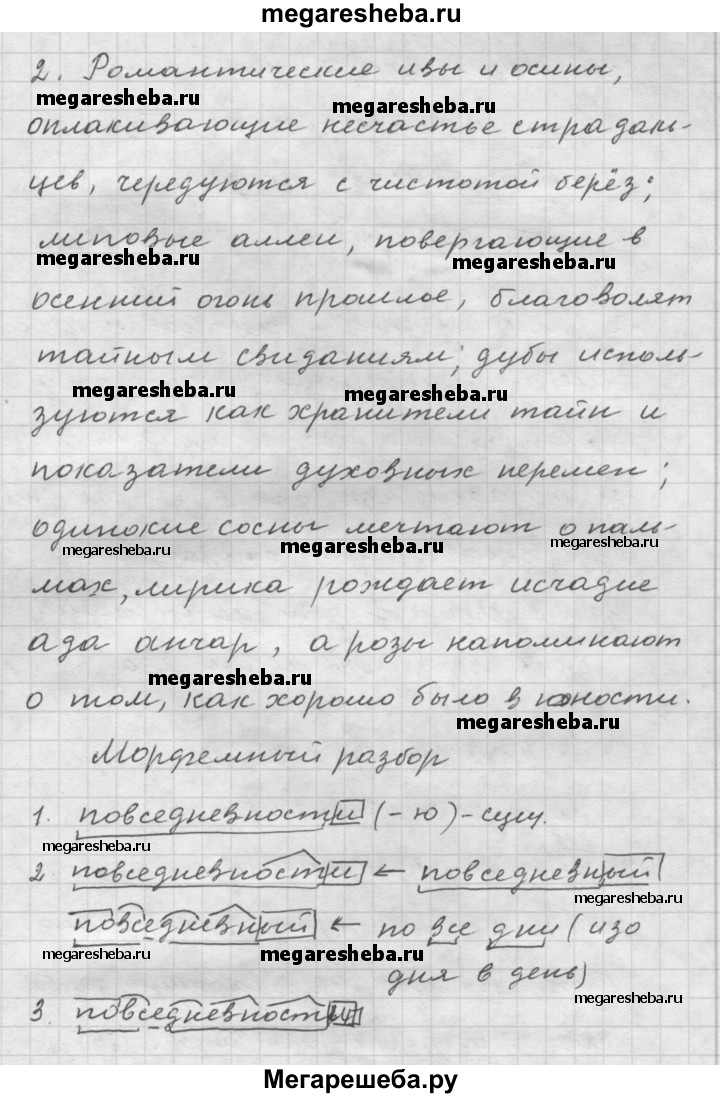 megaresheba.ru
2. Романтические ивы и осины,
megaresheba.ru megaresheba.ru
оплакивающие несчастье страдаль-
цев, чередуются с чистотой берёз;
липовые аллеи, повергающие в
megaresheba.ru megaresheba.ru
осенний огонь прошлое, благоволят
тайным свиданиям; дубы исполь-
megaresheba.ru megaresheba.ru
зуются как хранители тайн и
показатели духовных перемен;
одинокие сосны мечтают о паль-
megaresheba.ru megaresheba.ru megaresheba.ru
мах, лирика рождает исчадие
ада анчар, а розы напоминают
megaresheba.ru
о том, как хорошо было в юности.
megaresheba.ru
Морфемный разбор
1. повседневности (-ю) - сущ.
megaresheba.ru
2. повседневности ← повседневный
megaresheba.ru
повседневный ← по все дни (изо
megaresheba.ru megaresheba.ru
дня в день)
3. повседневности
megaresheba.ru
Мегарешеба.ру